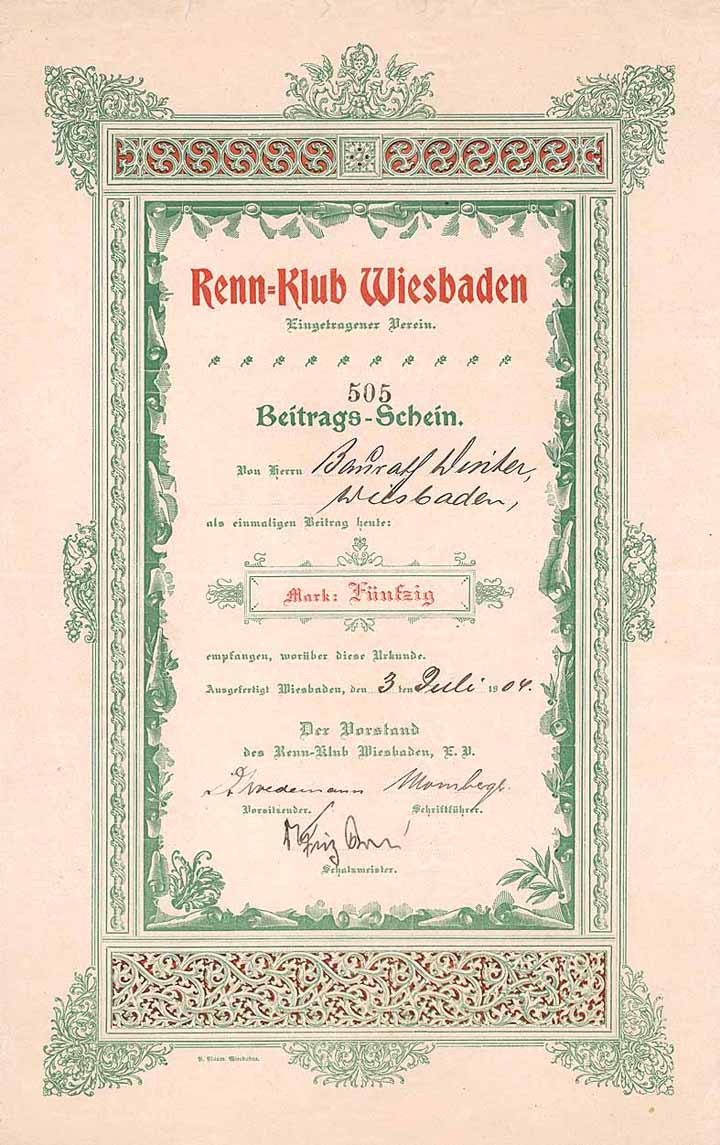 Renn=Klub Wiesbaden
Eingetragener Verein.
505
Beitrags-Schein.
Von Herrn Baurath Winter,
Wiesbaden,
als einmaligen Beitrag heute:
Mark: Fünfzig
empfangen, worüber diese Urkunde.
Ausgefertigt Wiesbaden, den 3 ten Juli 1904.
Der Vorstand
des Renn-Klub Wiesbaden, E. V.
Vorsitzender. Schriftführer.
Schatzmeister.
Wiesbaden.